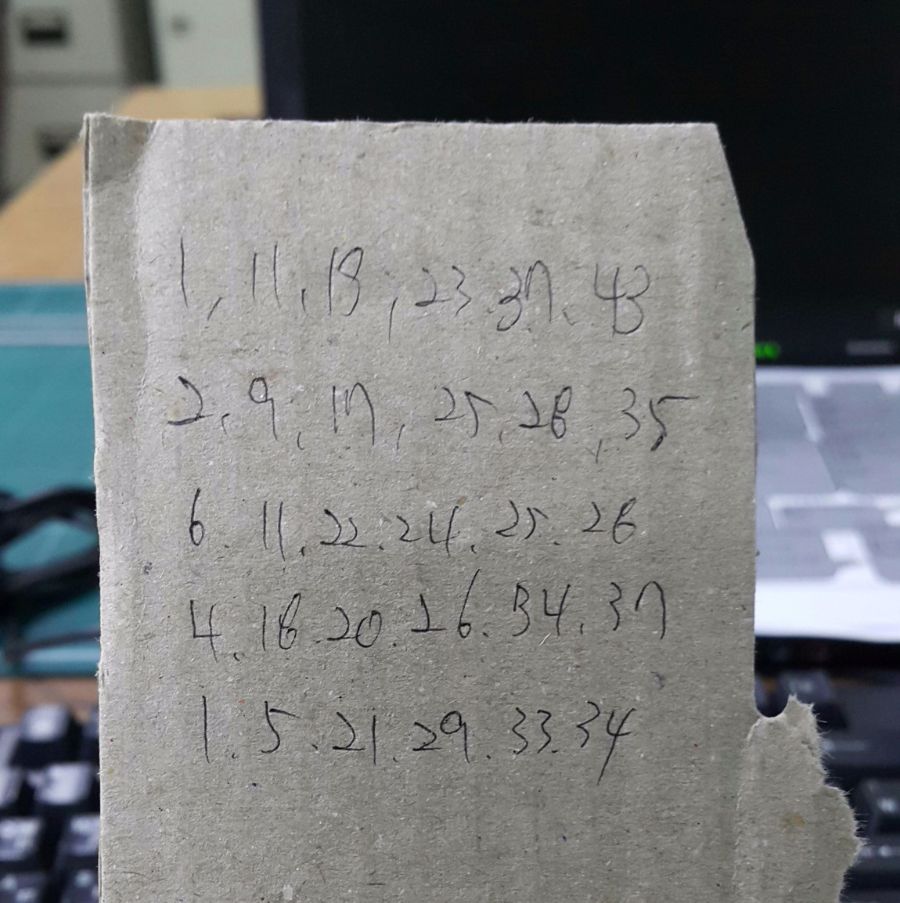 1, 11, 18, 23. 37. 43
2, 9, 17, 25, 28, 35
6. 11. 22. 24. 25. 28
4. 18. 20. 26. 34. 37
1. 5. 21. 29. 33. 34